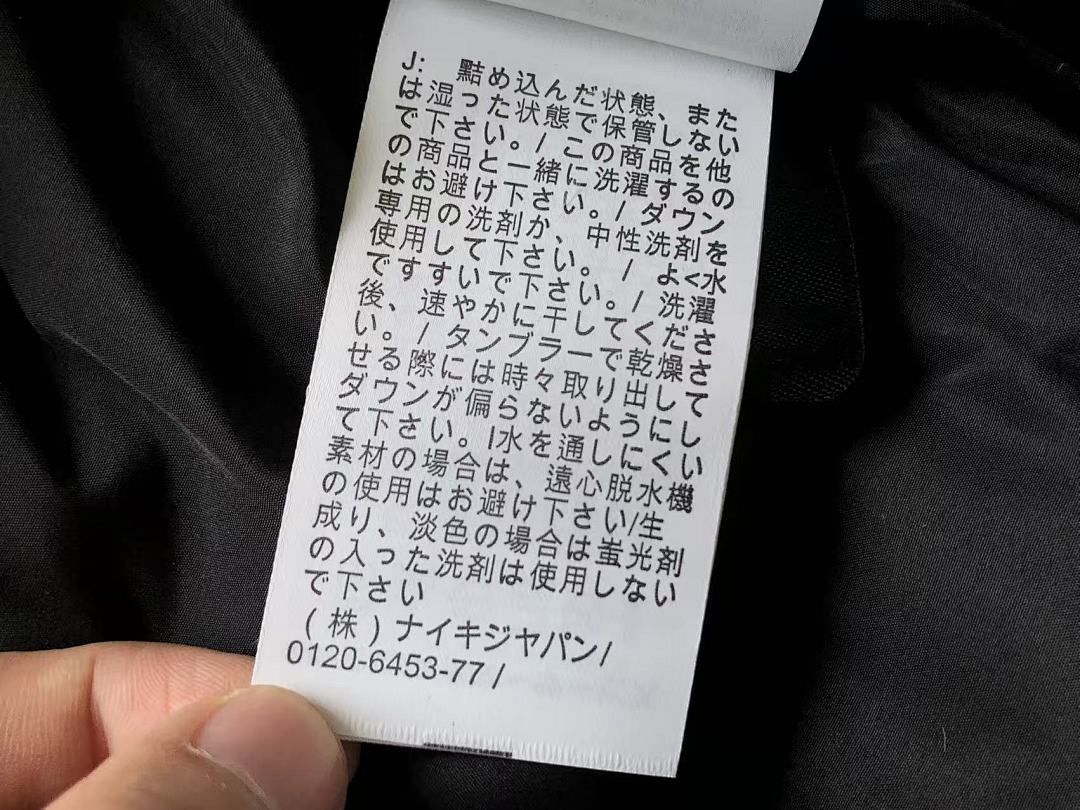 J: 黠め込んだ状態、また
は湿った状態で保管しない
で下さい。/この商品を他
の商品と一緒に洗濯するの
はお避け下さい。/ダウン
専用の洗剤か、中性洗剤を
使用して下さい。/よく水
ですすいで下さい。/洗濯
後、速やかに干してくださ
い。/タンブラーで乾燥さ
せる際には時々取り出して
ダウンが偏らないようにし
て下さい。|水を通しにくい
素材の場合は、遠心脱水機
の使用はお避け下さい/生
成り、淡色の場合は蚩光剤
の入った洗剤は使用しない
で下さい
(株)ナイキジヤパン/
0120-6453-77 /